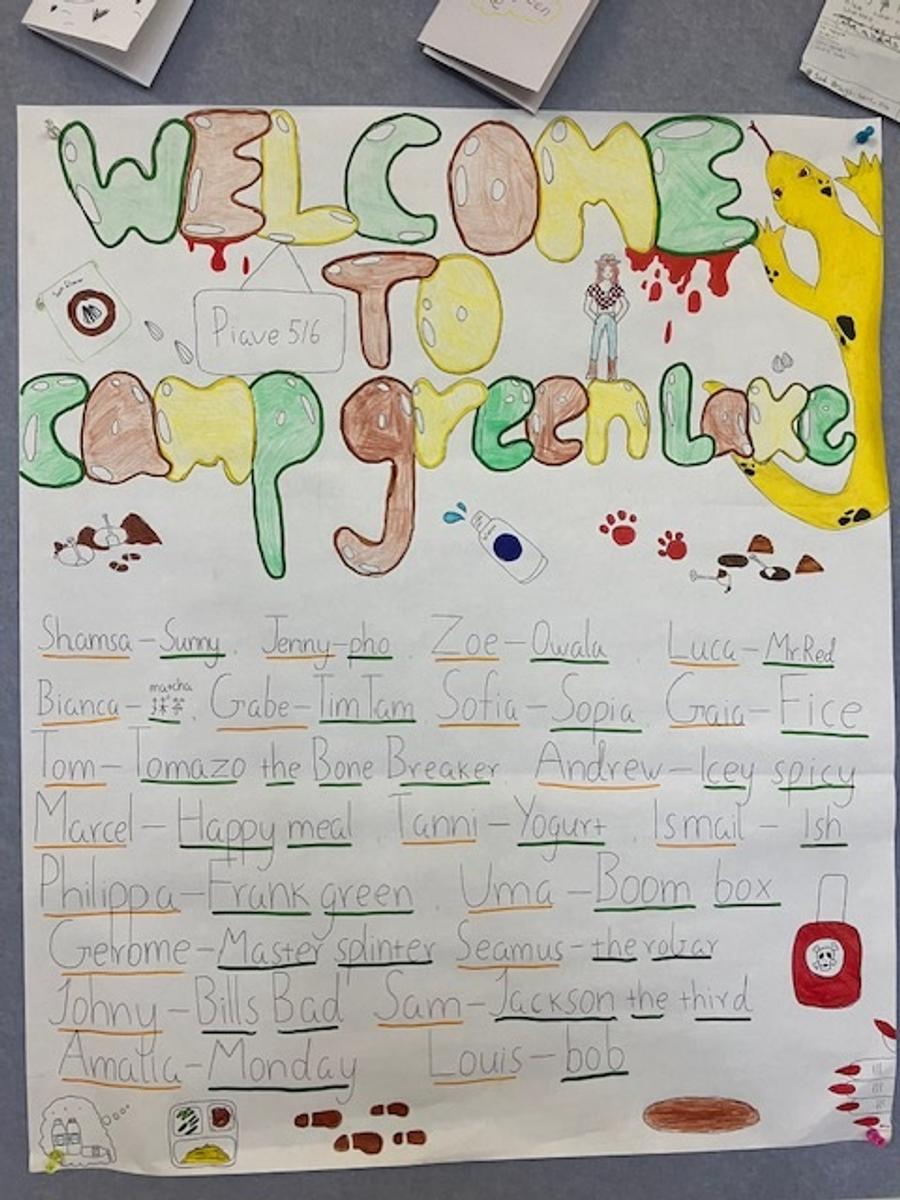 WELCOME
TO
Piave 5/6
camp green Lake
Shamsa - Sunny. Jenny-pho. Zoe - Owala. Luca - Mr.Red
matcha
Bianca - 抹茶. Gabe - TimTam. Sofia - Sopia. Gaia - Fice
Tom - Tomazo the Bone Breaker. Andrew - Icey spicy
Marcel - Happy meal. Tanni - Yogurt. Ismail - Ish
Philippa - Frank green. Uma - Boom box
Gelrome - Master splinter Seamus - the robar
Johny - Bills Bad Sam - Jackson the third
Amalia - Monday Louis - bob